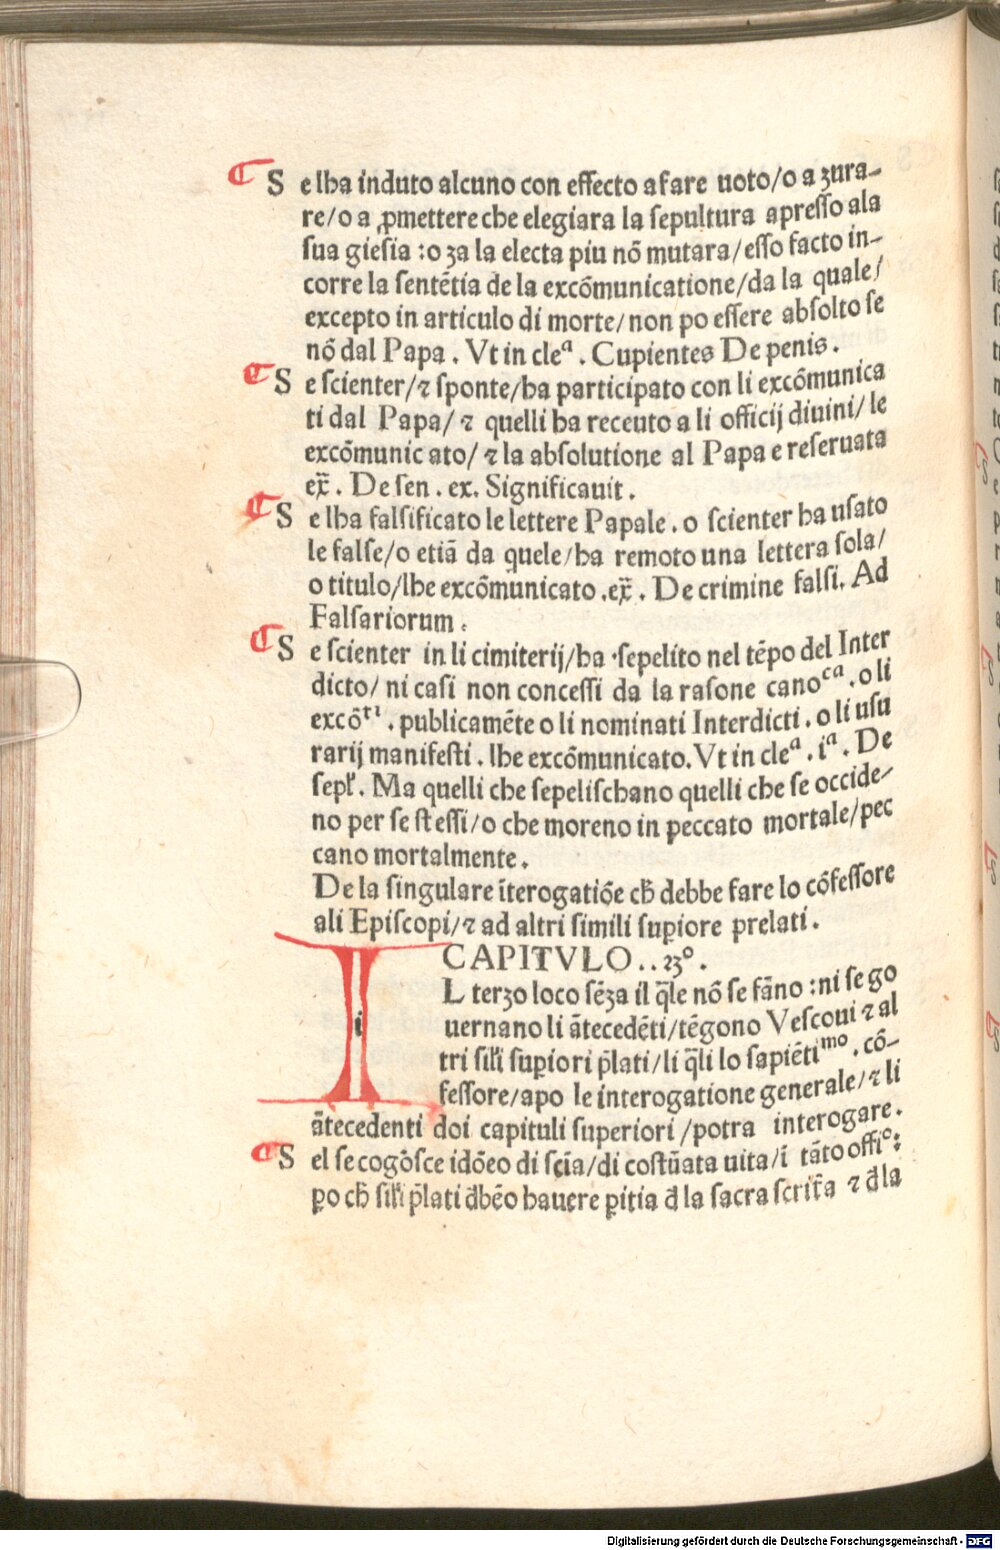 ¶ S e lha induto alcuno con effecto a fare uoto/o a ʒura-
re/o a ꝓmettere che elegiara la sepultura apresso ala
sua giesia :o ʒa la electa piu nõ mutara/esso facto in-
corre la sentẽtia de la excõmunicatione/da la quale/
excepto in articulo di morte/non po essere absolto se
nõ dal Papa. Vt in cleᵃ. Cupientes De penis.
¶ S e scienter/⁊ sponte/ha participato con li excõmunica
ti dal Papa/⁊ quelli ha receuto a li officij diuini/le
excõmunic ato/⁊ la absolutione al Papa e reseruata
ex̃. De sen. ex. Significauit.
¶ S e lha falsificato le lettere Papale. o scienter ha usato
le false/o etiã da quele/ha remoto una lettera sola/
o titulo/lhe excõmunicato.ex̃. De crimine falsi. Ad
Falsariorum.
¶ S e scienter in li cimiterij/ha sepelito nel tẽpo del Inter
dicto/ ni casi non concessi da la rasone canoᶜᵃ. o li
excõᵗⁱ. publicamẽte o li nominati Interdicti. o li usu
rarij manifesti. lhe excõmunicato. Vt in cleᵃ. iᵃ. De
sepƚ. Ma quelli che sepelischano quelli che se occide-
no per se stessi/o che moreno in peccato mortale/pec
cano mortalmente.
De la singulare ĩterogatiõe cħ debbe fare lo cõfessore
ali Episcopi/⁊ ad altri simili suꝑiore prelati.
CAPITVLO..23°.
I i L terʒo loco sẽʒa il q̃le nõ se fãno :ni se go
uernano li ãtecedẽti/tẽgono Vescoui ⁊ al
tri siƚi suꝑiori p̃lati/li q̃li lo sapiẽtiᵐᵒ. cõ-
fessore/apo le interogatione generale/⁊ li
ãtecedenti doi capituli superiori/potra interogare.
¶ S el se cogõsce idõeo di scĩa/di costũata uita/ĩ tãto offiᶜ:
ꝑo cħ siƚi p̃lati đbẽo hauere ꝑitia đ la sacra scrit̃a ⁊ đ la
Digitalisierung gefördert durch die Deutsche Forschungsgemeinschaft - DFG